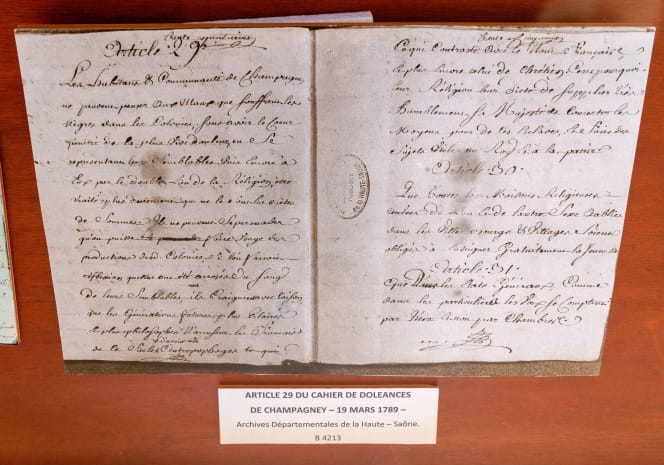 trente quatrieme
Article 29.
Les habitans & Communauté de Champagney
ne peuvent penser aux Maux que souffrent les
Nègres dans les Colonies, sans avoir le Cœur
pénétré de la plus vive douleur, en Se
représentans leurs Semblables, Unis encore à
Eux par le double Lien de la Religion, être
traités plus durement que ne le sont les bêtes
de Sommes. Ils ne peuvent Se persuader
qu'on puisse faire Usage des
productions desd. Colonies, si l'on faisoit
réflexion qu'elles ont été arrosées du Sang
de leurs Semblables, ils Craignent avec raison
que les Générations futures plus éclairées
et plus philosophes n'accusent les Francois
de ce Siècle d'avoir été Antropophages ce qui
trente cinquieme
Ce qui Contraste avec le Nom de François
et plus encore celui de Chrétien, C'est pourquoi
leur Religion leur dicte de Supplier très
humblement Sa Majesté de Concerter les
Moyens pour de ces Esclaves, en faire des
Sujets Utiles au Roy & à la patrie
Article 30.
Que toutes les Maisons Religieuses
rentées de l'un & de l'autre Sexe établies
dans les Villes, Bourgs & Villages Soient
obligées à enseigner gratuitement la Jeunesse
Article 31.
que dans les Etats Généraux Comme
dans les particuliers les Voix se Comptent
par tête & non par Chambres
ARCHIVES
DE LA HAUTE-SAÔNE
ARTICLE 29 DU CAHIER DE DOLEANCES
DE CHAMPAGNEY – 19 MARS 1789 –
Archives Départementales de la Haute – Saône.
B 4213